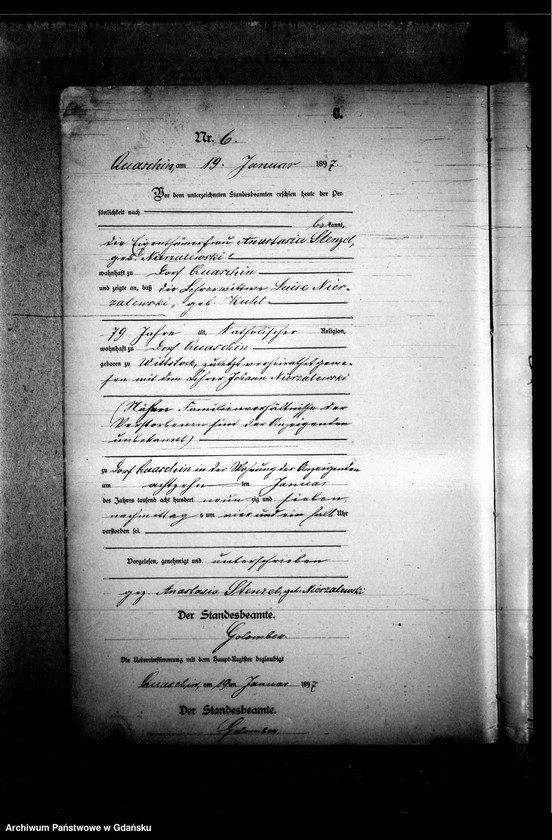 C.
Nr. 6.
Quaschin, am 19. Januar 1897.
Vor dem unterzeichneten Standesbeamten erschien heute der Per-
sönlichkeit nach
bekannt,
die Eigenthümerfrau Anastasia Stenzel,
geb. Nierzalewski
wohnhaft zu Dorf Quaschin
und zeigte an, daß die Lehrerwittwe Luise Nier-
zalewski, geb. Kuhl
79 Jahre alt, Katholischer Religion,
wohnhaft zu Dorf Quaschin
geboren zu Wittstock, zuletzt verheirathet gewe-
sen mit dem Lehrer Johann Nierzalewski
(Nähere Familienverhältnisse der
Verstorbenen sind der Anzeigenden
unbekannt)
zu Dorf Quaschin in der Wohnung der Anzeigenden
am achtzehnten Januar
des Jahres tausend acht hundert neunzig und sieben
nachmittags um vier und ein halb Uhr
verstorben sei.
Vorgelesen, genehmigt und unterschrieben
gez. Anastasia Stenzel, geb. Nierzalewski
Der Standesbeamte.
Golombek.
Die Uebereinstimmung mit dem Haupt-Register beglaubigt
Quaschin, am 19ten Januar 1897
Der Standesbeamte.
Golombek.
Archiwum Państwowe w Gdańsku